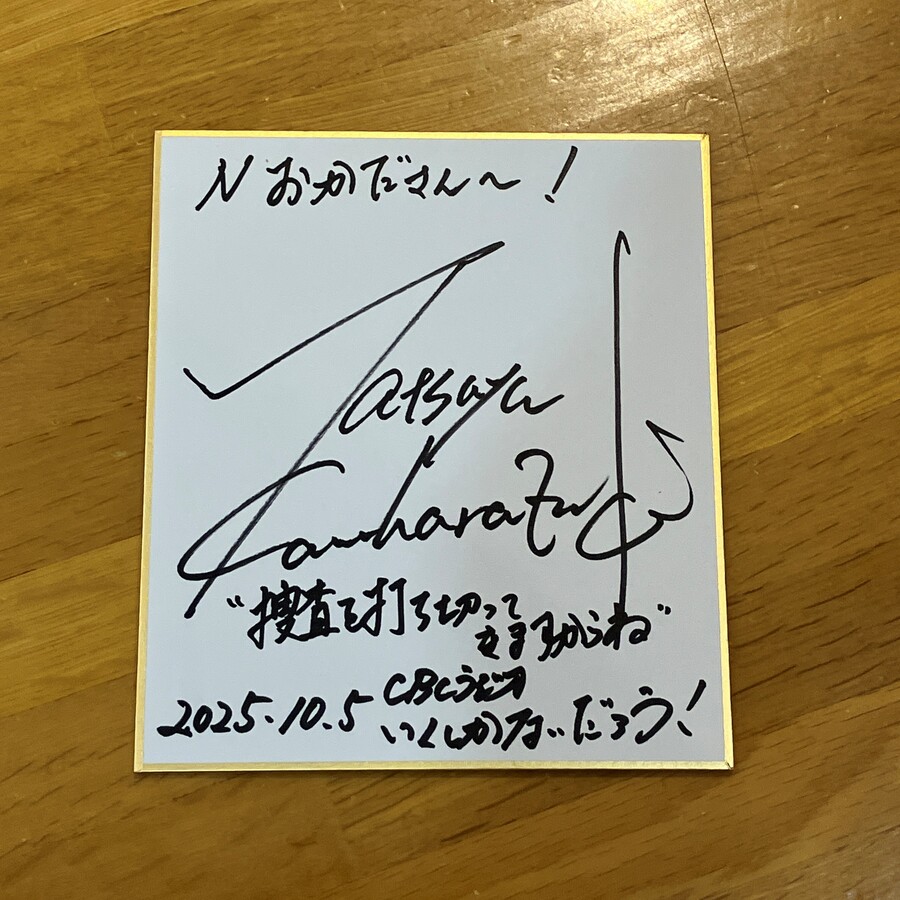 Nおかださん〜!
Tatsuya
Kamharazuka
"捜査を打ち切って
きますからね"
2025.10.5 CBCラジオ
いくしかないだろう!